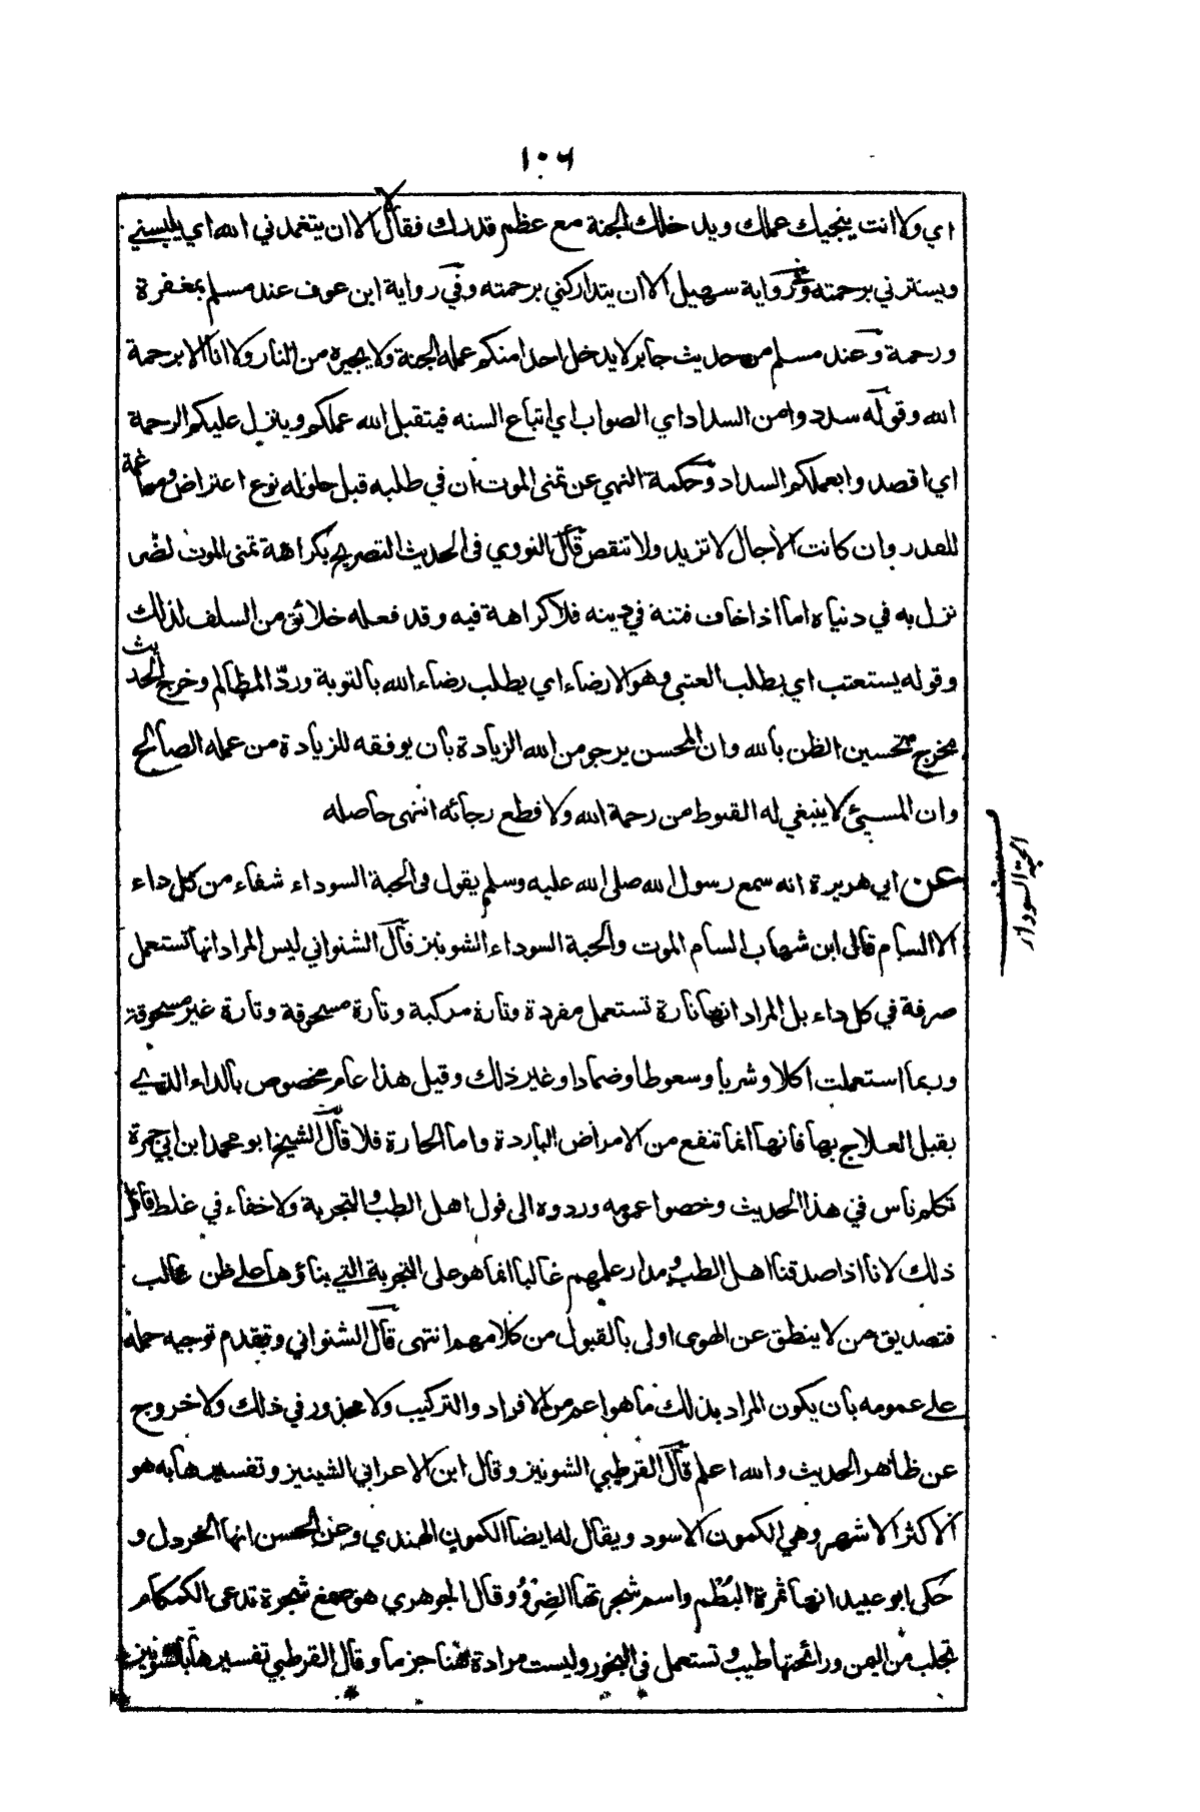 ١٠٦
اي ولا انت ينجيك عملك ويدخلك الجنة مع عظم قدرك فقال لا الا ان يتغمدني الله اي يلبسني
ويسترني برحمته وفي رواية سهيل الا ان يتداركني برحمته وفي رواية ابن عوف عند مسلم بمغفرة
ورحمة وعند مسلم من حديث جابر لا يدخل احدا منكم عمله الجنة ولا يجيره من النار ولا انا الا برحمة
الله وقوله سددوا من السداد اي الصواب اي اتباع السنه فيتقبل الله عملكم وينزل عليكم الرحمة
اي اقصدوا بعملكم السداد وحكمة النهي عن تمني الموت ان في طلبه قبل حلوله نوع اعتراض ومراغمة
للقدر وان كانت الآجال لا تزيد ولا تنقص قال النووي في الحديث التصريح بكراهة تمني الموت لضر
نزل به في دنياه اما اذا خاف فتنة في دينه فلا كراهة فيه وقد فعله خلائق من السلف لذلك
وقوله يستعتب اي يطلب العتبى وهو الارضاء اي يطلب رضاء الله بالتوبة وردّ المظالم وخرج الحديث
مخرج تحسين الظن بالله وان المحسن يرجو من الله الزيادة بان يوفقه للزيادة من عمله الصالح
وان المسيئ لا ينبغي له القنوط من رحمة الله ولا قطع رجائه انتهى حاصله
عن ابي هريرة انه سمع رسول الله صلى الله عليه وسلم يقول في الحبة السوداء شفاء من كل داء
الا السام قال ابن شهاب السام الموت والحبة السوداء الشونيز قال الشنواني ليس المراد انها تستعمل
صرفة في كل داء بل المراد انها تارة تستعمل مفردة وتارة مركبة وتارة مسحوقة وتارة غير مسحوقة
وربما استعملت اكلا وشربا وسعوطا وضمادا وغير ذلك وقيل هذا عام مخصوص بالداء الذي
يقبل العلاج بها فانها انما تنفع من الامراض الباردة واما الحارة فلا قال الشيخ ابو محمد ابن ابي جمرة
تكلم ناس في هذا الحديث وخصوا عمومه وردوه الى قول اهل الطب والتجربة ولا خفاء في غلط قائل
ذلك لانا اذا صدقنا اهل الطب ومدار علمهم غالبا انما هو على التجربة التي بناؤها على ظن غالب
فتصديق من لا ينطق عن الهوى اولى بالقبول من كلامهم انتهى قال الشنواني وتقدم توجيه حمله
على عمومه بان يكون المراد بذلك ما هو اعم من الافراد والتركيب ولا محذور في ذلك ولا خروج
عن ظاهر الحديث والله اعلم قال القرطبي الشونيز وقال ابن الاعرابي الشينيز وتفسيرها به هو
الاكثر الاشهر وهي الكمون الاسود ويقال له ايضا الكمون الهندي وعن الحسن انها الخردل و
حكى ابو عبيد انها ثمرة البُطْم واسم شجرتها الضِرْوُ وقال الجوهري هو صمغ شجرة تدعى الكمكام
تجلب من اليمن ورائحتها طيب وتستعمل في البخور وليست مرادة هنا جزما وقال القرطبي تفسيرها بالشونيز
الحبة السوداء